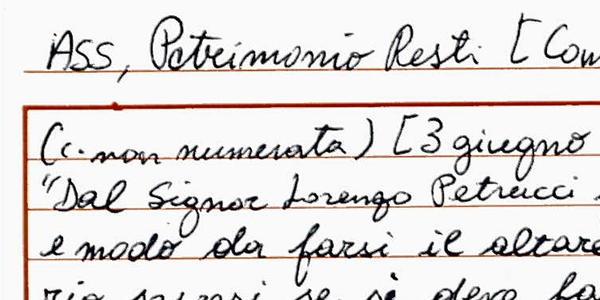 ASS, Patrimonio Resti [Com
(c. non numerata) [3 giugno
"Dal Signor Lorenzo Petrucci
e modo da farsi il altare
rio se si deve fa